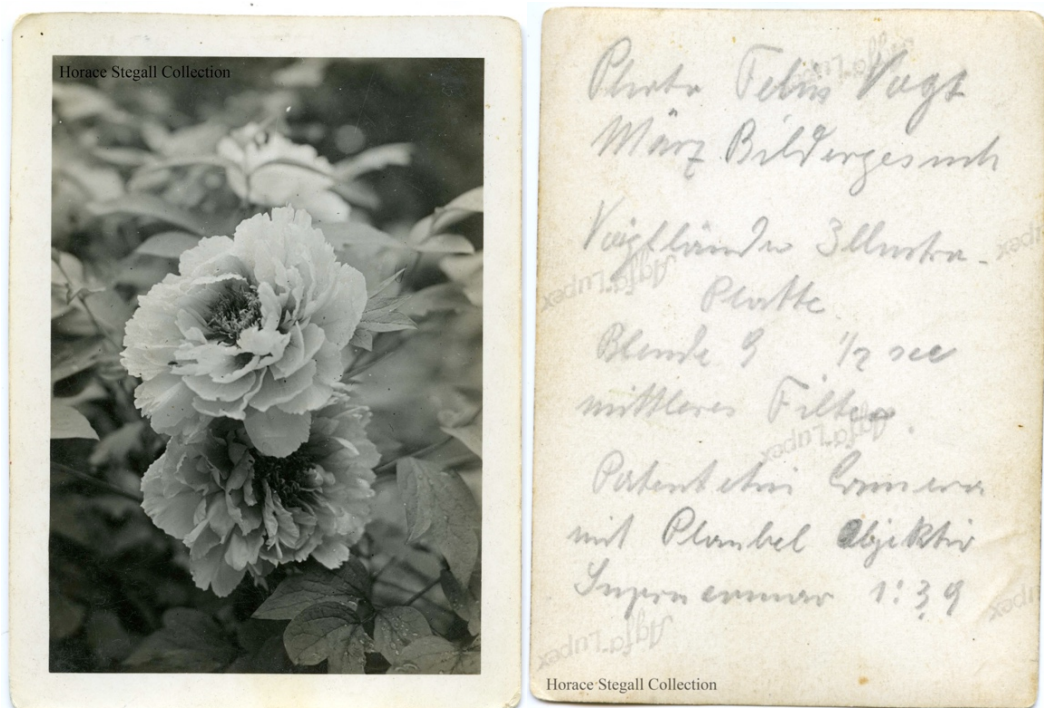 Horace Stegall Collection
Photo Felix Vogt
März Bildergesuch
Voigtländer Illustra-
Platte
Blende 9 1/2 sec
mittleres Filter.
Patent etui Camera
mit Plaubel Objektiv
1:3,9
Agfa Lupex
Agfa Lupex
Agfa Lupex
Agfa Lupex
Horace Stegall Collection